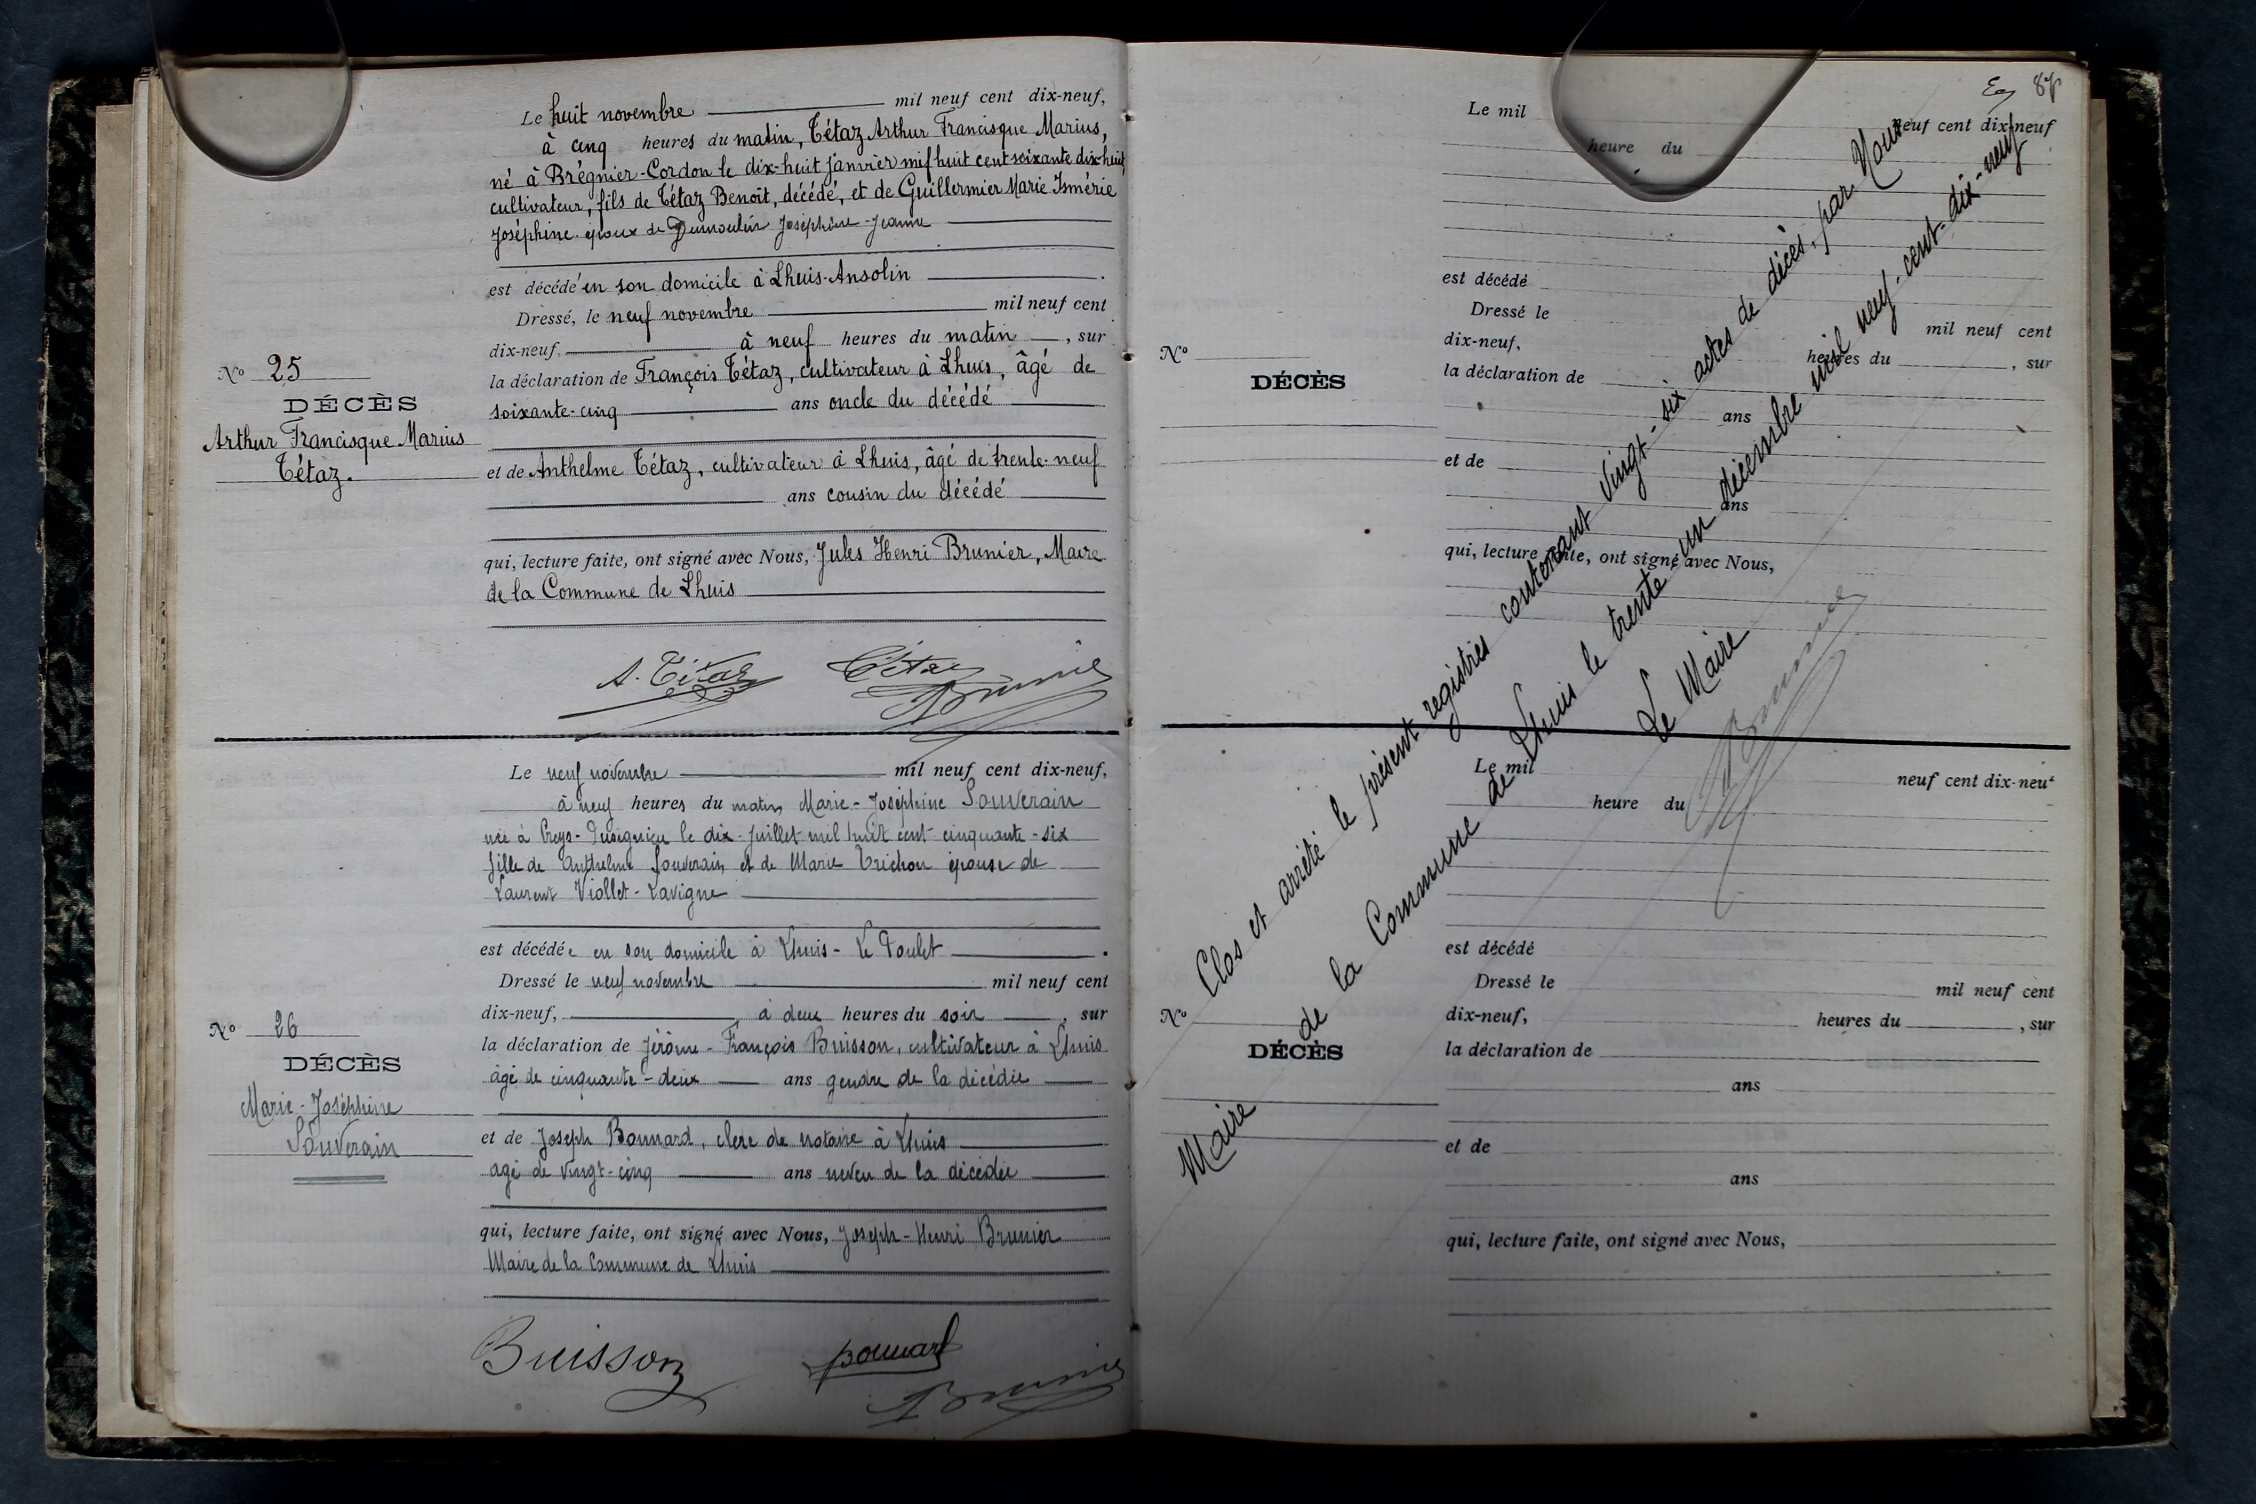 Le huit novembre mil neuf cent dix-neuf,
à cinq heures du matin, Tétaz Arthur Francisque Marius,
né à Brégnier-Cordon le dix-huit janvier mil huit cent soixante dix-huit,
cultivateur, fils de Tétaz Benoît, décédé, et de Guillermier Marie Ismérie
Joséphine époux de Dumoulin Joséphine Jeanne
est décédé en son domicile à Lhuis-Ansolin .
Dressé, le neuf novembre mil neuf cent
dix-neuf, à neuf heures du matin , sur
la déclaration de François Tétaz, cultivateur à Lhuis, âgé de
soixante-cinq ans oncle du décédé
et de Anthelme Tétaz, cultivateur à Lhuis, âgé de trente-neuf
ans cousin du décédé
qui, lecture faite, ont signé avec Nous, Jules Henri Brunier, Maire
de la Commune de Lhuis
A. Tétaz Tétaz
Brunier
No 25
DÉCÈS
Arthur Francisque Marius
Tétaz.
Le neuf novembre mil neuf cent dix-neuf,
à neuf heures du matin Marie-Joséphine Souverain
née à Creys-Pusignieu le dix-juillet mil huit cent cinquante-six
fille de Anthelme Souverain et de Marie Trichon épouse de
Laurent Viollet-Lavigne
est décédée en son domicile à Lhuis - Le Poulet .
Dressé le neuf novembre mil neuf cent
dix-neuf, à deux heures du soir , sur
la déclaration de Jérôme-François Buisson, cultivateur à Lhuis
âgé de cinquante-deux ans gendre de la décédée
et de Joseph Bonnard, clerc de notaire à Lhuis
agé de vingt-cinq ans neveu de la décédée
qui, lecture faite, ont signé avec Nous, Joseph-Henri Brunier
Maire de la Commune de Lhuis
Buisson Bonnard
Brunier
No 26
DÉCÈS
Marie-Joséphine
Souverain
87
Le mil neuf cent dix-neuf
heure du
est décédé
Dressé le mil neuf cent
dix-neuf, heures du , sur
la déclaration de
ans
et de
ans
qui, lecture faite, ont signé avec Nous,
No
DÉCÈS
Clos et arrêté le présent registres contenant vingt-six actes de décès, par Nous
Maire de la Commune de Lhuis le trente un décembre mil neuf-cent-dix-neuf
Le Maire
Brunier
Le mil neuf cent dix-neuf
heure du
est décédé
Dressé le mil neuf cent
dix-neuf, heures du , sur
la déclaration de
ans
et de
ans
qui, lecture faite, ont signé avec Nous,
No
DÉCÈS